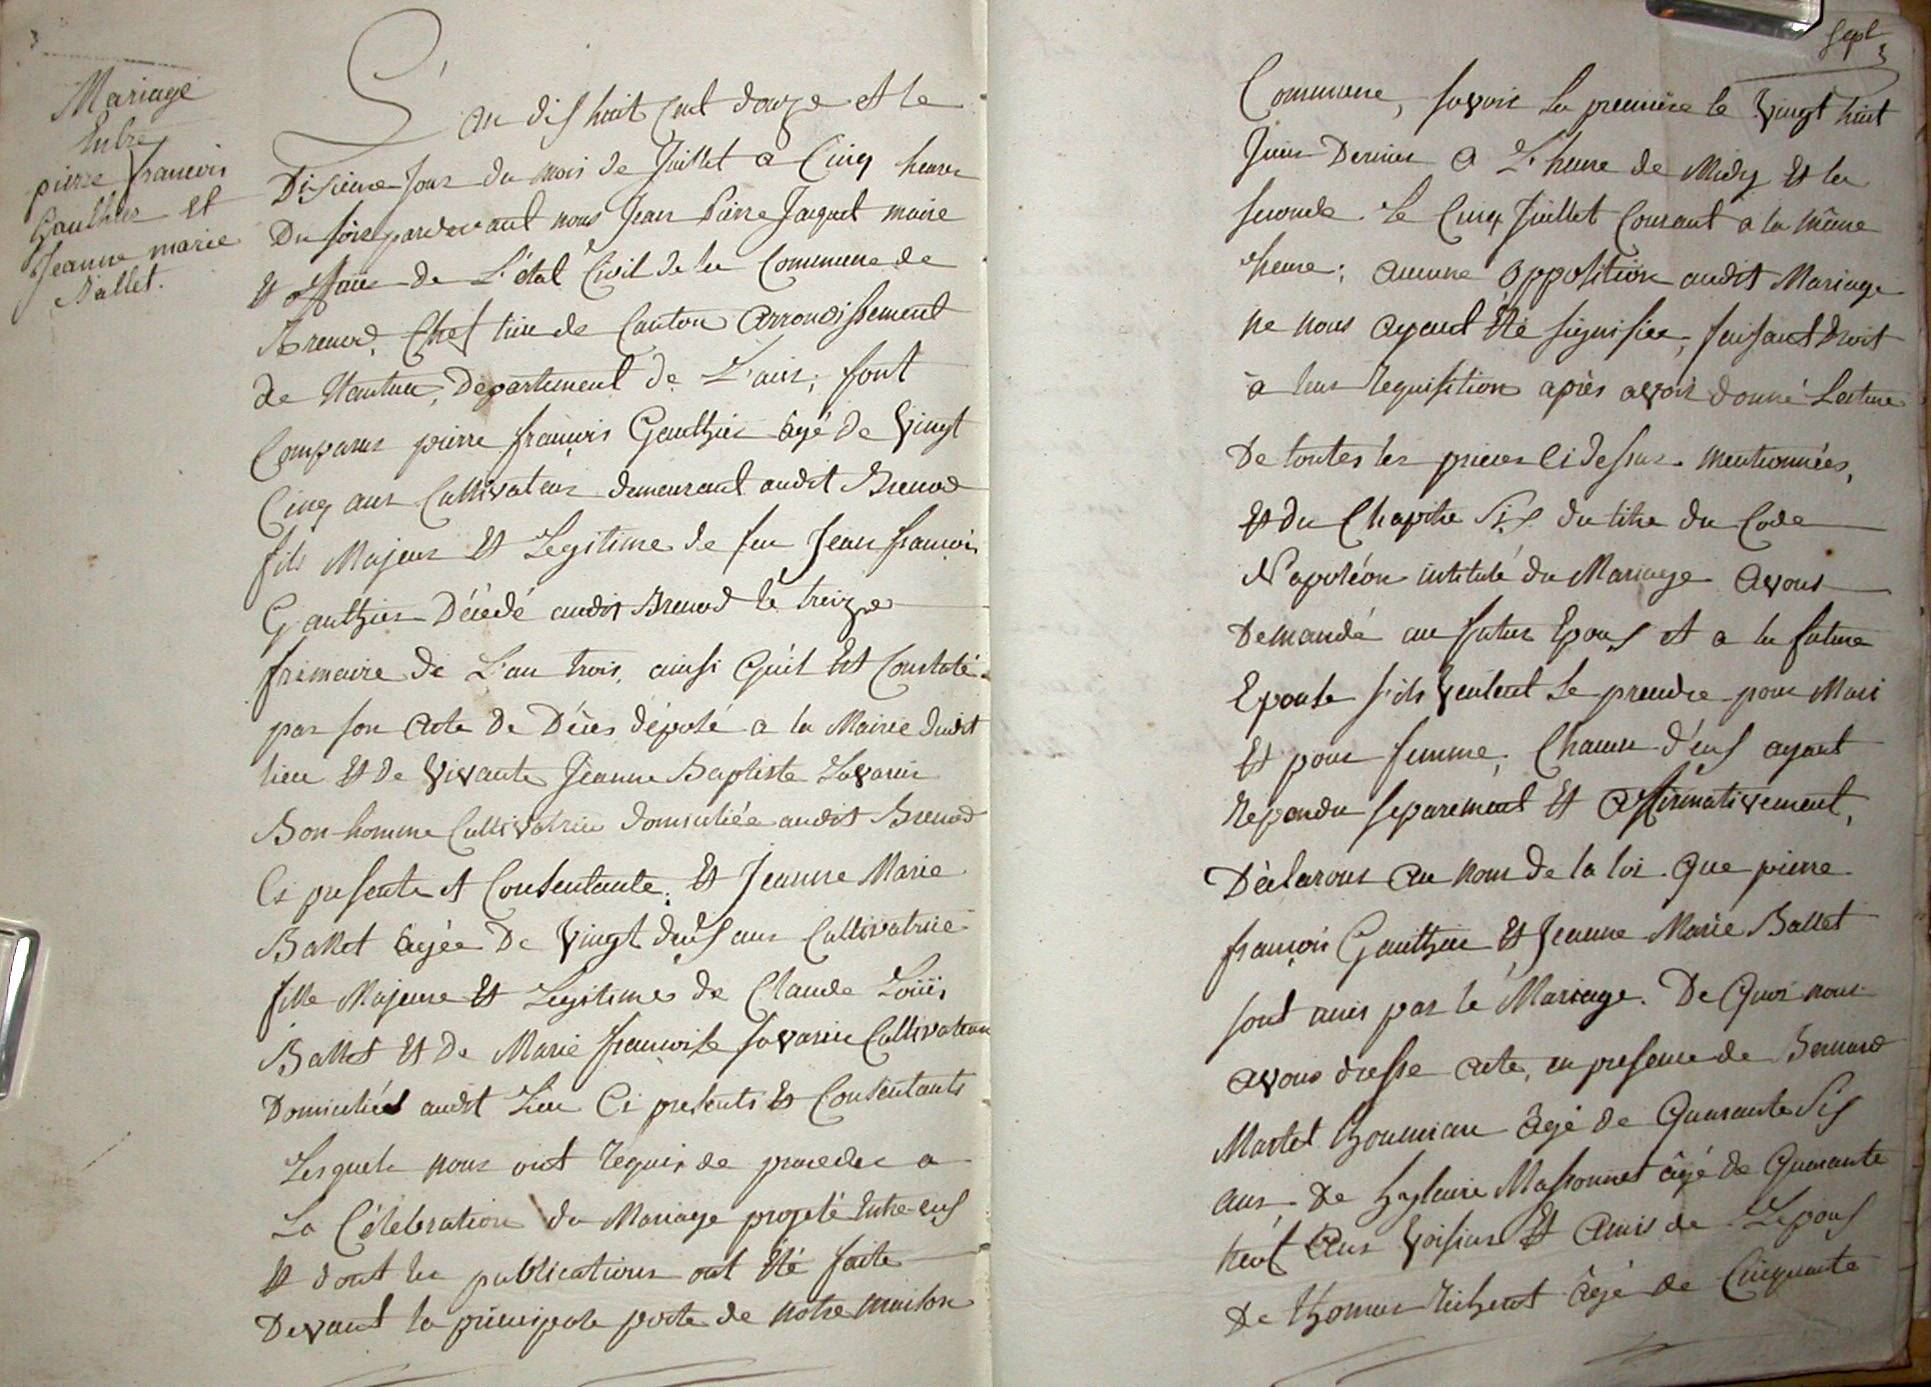 Mariage
Entre
pierre francois
Gauthier et
Jeanne marie
Ballet.
L'an dix huit cent douze et le
Dixieme jour du mois de Juillet a Cinq heures
Du soir pardevant nous Jean Pierre Jacquet maire
Et officier de L'état Civil de la Commune de
Brenod, Chef lieu de Canton arrondissement
de Nantua, Departement de L'ain; sont
Comparus pierre françois Gauthier âgé de Vingt
Cinq ans Cultivateur demeurant audit Brenod
fils Majeur Et Legitime de feu Jean francois
Gauthier Décédé audit Brenod le treize
frimaire de L'an trois, ainsi Qu'il Est Constaté
par son acte de Décès déposé a la Mairie dudit
lieu Et de Vivante Jeanne Baptiste Savarin
Bon-homme Cultivatrice domiciliée audit Brenod
Ci presente et Consentante; Et Jeanne Marie
Ballet âgée De Vingt deux ans Cultivatrice
fille Majeure Et Legitime de Claude Loüis
Ballet Et De Marie françoise Savarin Cultivateurs
Domiciliés audit Lieu Ci presents Et Consentants
Lesquels nous ont requis de proceder a
La Célebration du Mariage projeté Entre eux
Et dont les publications ont Eté faite
Devant la principale porte de notre maison
Sept
Commune, savoir La premiere le Vingt huit
Juin Dernier a L'heure de Midy Et la
seconde Le Cinq Juillet Courant a la même
heure; aucune opposition audit Mariage
ne nous ayant Eté signifiée, faisant droit
à leur requisition après avoir donné Lecture
De toutes les pieces Ci dessus mentionnées,
Et du Chapitre Six du titre du Code
Napoléon intitulé du Mariage avons
Demandé au futur Epoux et a la future
Epouse s'ils Veulent Se prendre pour Mari
Et pour femme; Chacun d'eux ayant
Repondu separement Et affirmativement,
Déclarons au nom de la loi Que pierre
françois Gauthier Et Jeanne Marie Ballet
sont unis par le Mariage. De Quoi nous
avons dressé acte, en presence de Bernard
Martel âgé de Quarante Six
ans De hylaire Massonnet âgé de Quarante
neuf ans Voisins Et amis de Lepoux
De thomas âgé de Cinquante